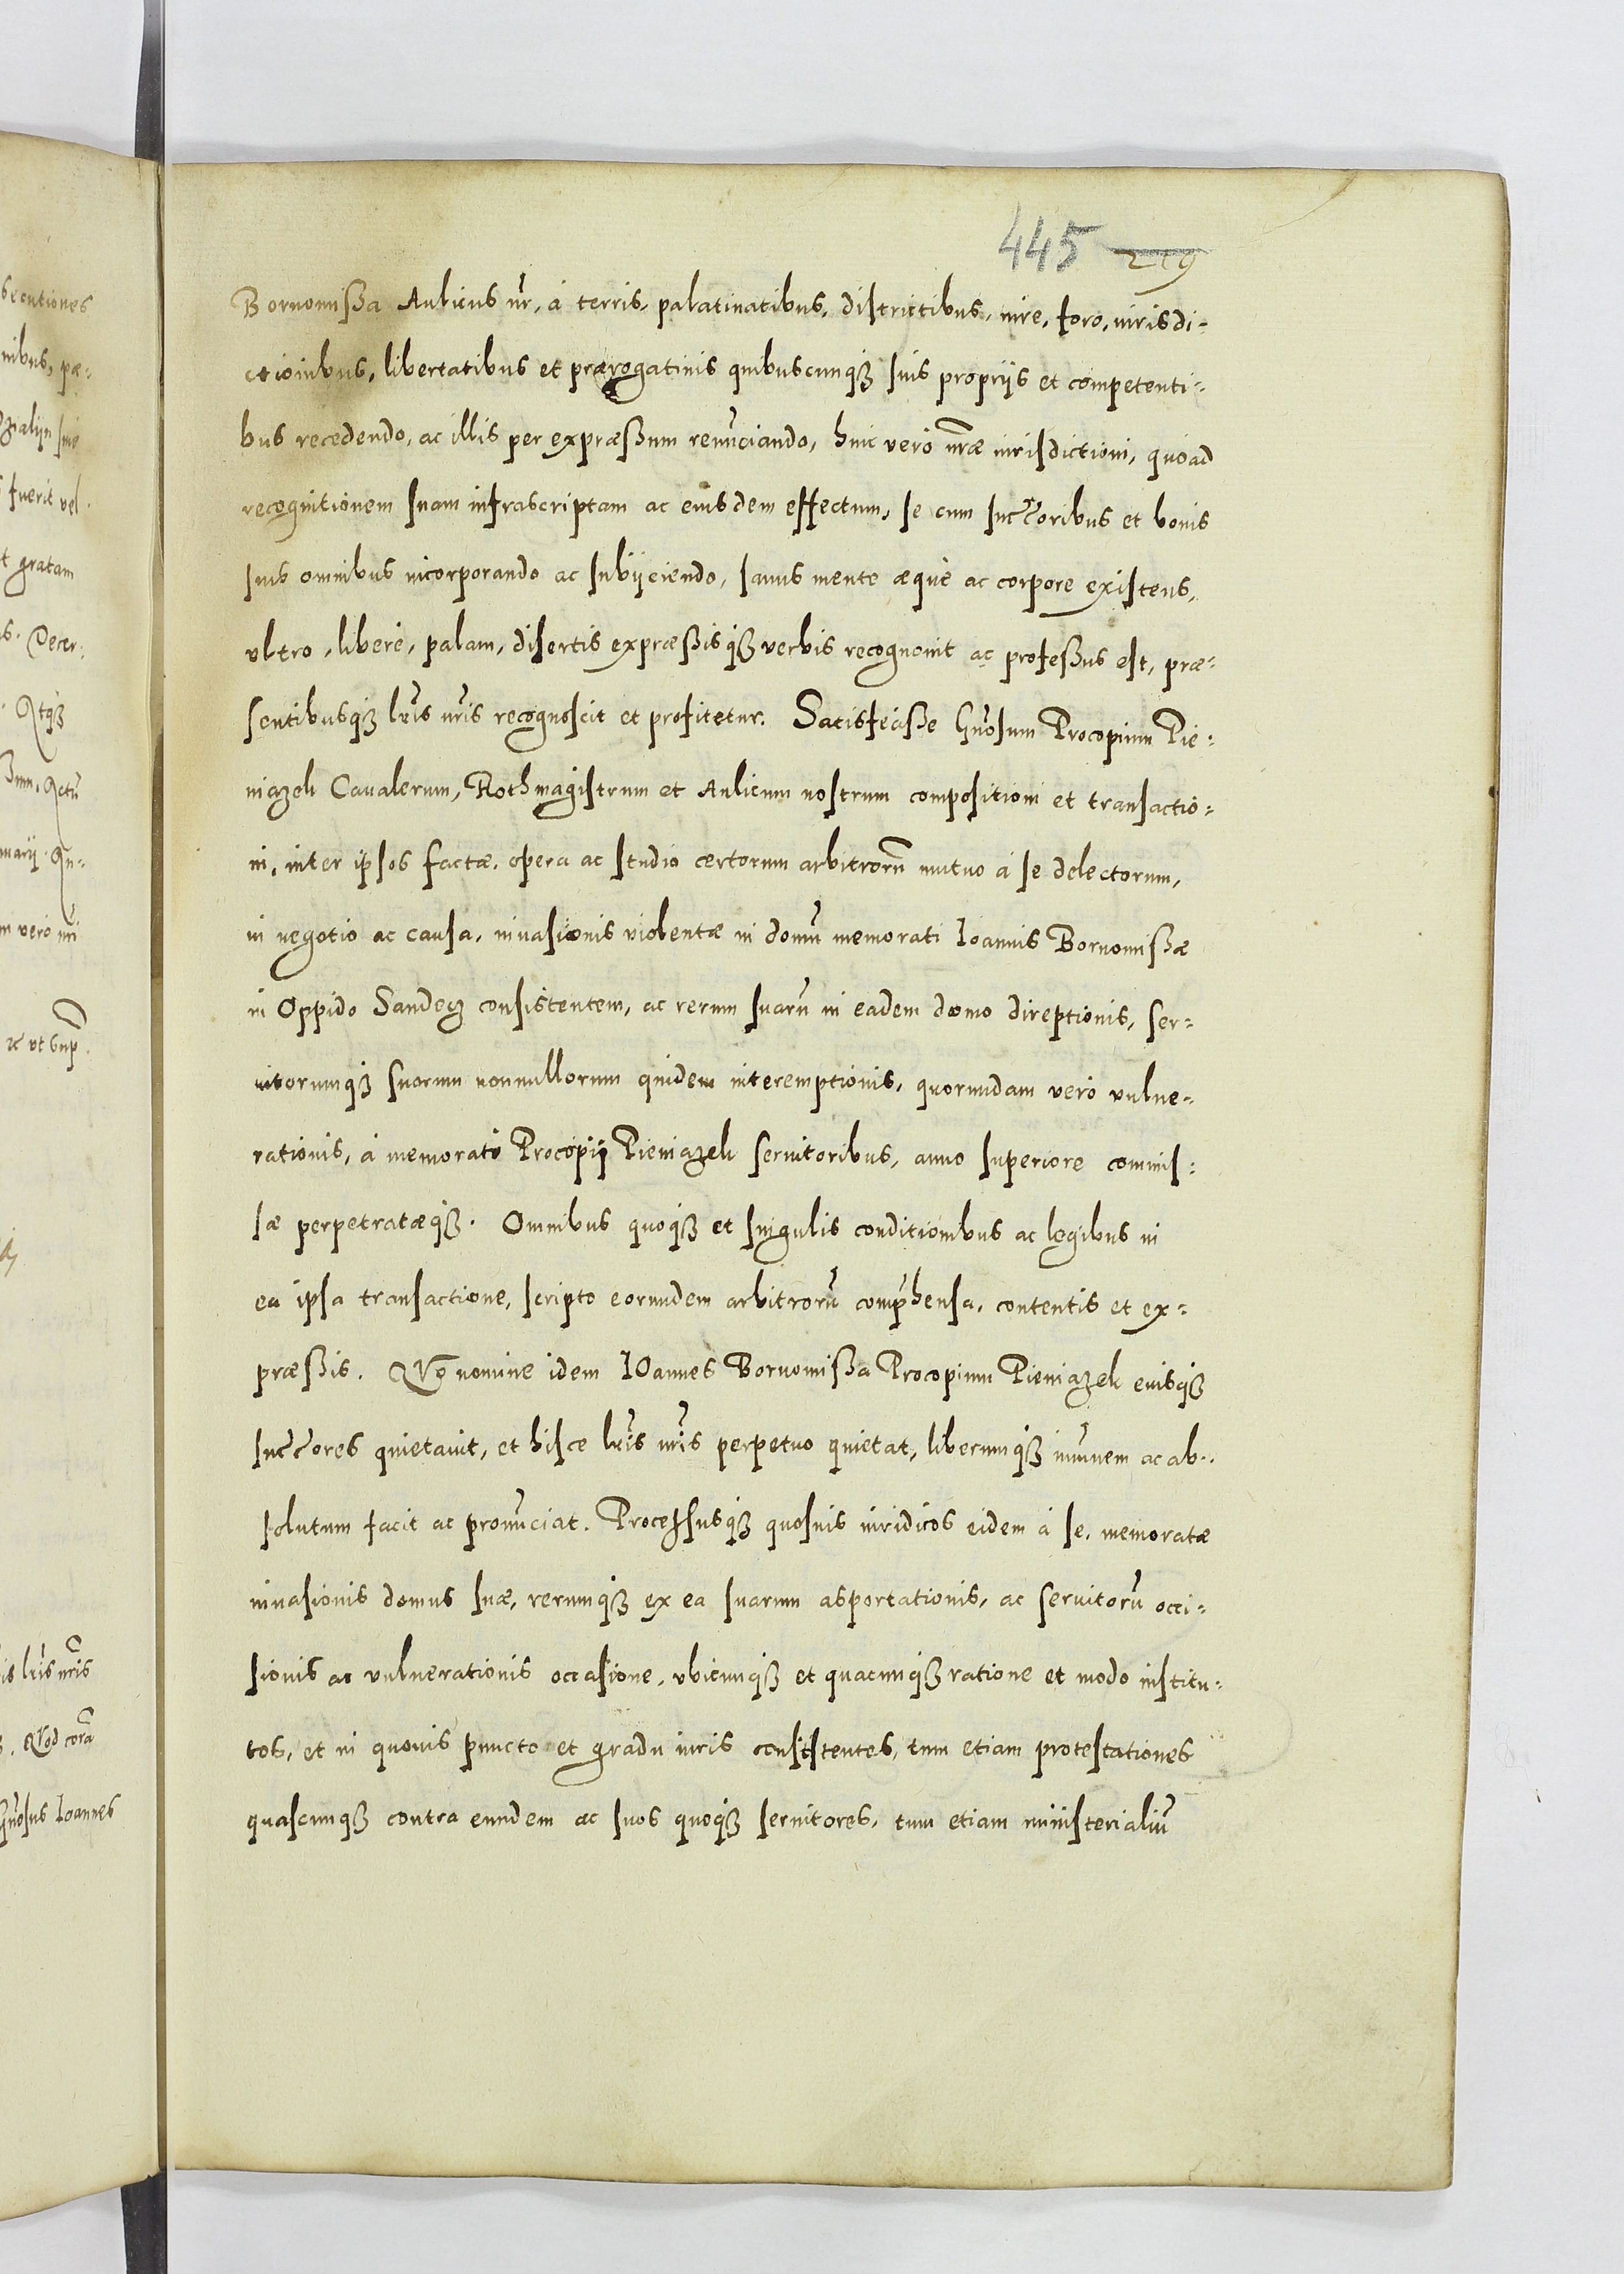 445 219
Bornomißa Aulicus nr̃, à terris, palatinatibus, districtibus, iure, foro, iurisdi-
ctionibus, libertatibus et prærogatiuis quibuscunqȝ suis proprijs et competenti-
bus recedendo, ac illis per expræßum renũciando, huic verò nr̃æ iurisdictioni, quoad
recognitionem suam infrascriptam ac eiusdem effectum, se cum succ̃oribus et bonis
suis omnibus incorporando ac subijciendo, sanus mente æquè ac corpore existens,
vltro, liberè, palam, disertis expræßisqȝ verbis recognouit ac profeßus est, præ-
sentibusqȝ lr̃is nr̃is recognoscit et profitetur. Satisfeciße Gñosum Procopium Pie-
niazek Caualerum, Rothmagistrum et Aulicum nostrum compositioni et transactio-
ni, inter ipsos factæ, opera ac studio certorum arbitrorũ mutuo à se delectorum,
in negotio ac causa, inuasionis violentæ in domũ memorati Ioannis Bornomißæ
in Oppido Sandecz consistentem, ac rerum suarũ in eadem domo direptionis, ser-
uitorumqȝ suorum nonnullorum quidem interemptionis, quorundam verò vulne-
rationis, à memorati Procopij Pieniazek seruitoribus, anno superiore commis-
sæ perpetratæqȝ. Omnibus quoqȝ et singulis conditionibus ac legibus in
ea ipsa transactione, scripto eorundem arbitrorũ comp̃hensa, contentis et ex-
præßis. QVo nomine idem IOannes Bornomißa Procopium Pieniazek eiusqȝ
succ̃ores quietauit, et hisce lr̃is nr̃is perpetuo quietat, liberumqȝ im̃unem ac ab-
solutum facit ac pronũciat. Processusqȝ quosuis iuridicos eidem à se, memoratæ
inuasionis domus suæ, rerumqȝ ex ea suarum asportationis, ac seruitorũ occi-
sionis ac vulnerationis occasione, vbicunqȝ et quacunqȝ ratione et modo institu-
tos, et in quouis puncto et gradu iuris consistentes, tum etiam protestationes
quascunqȝ contra eundem ac suos quoqȝ seruitores, tum etiam ministerialiũ